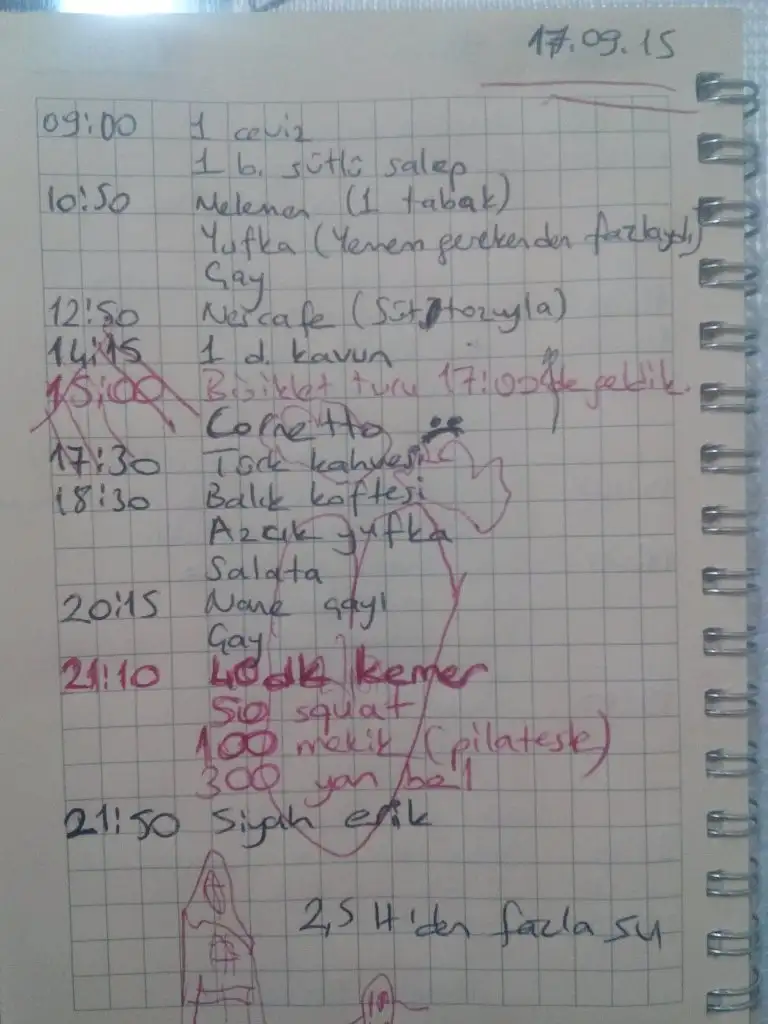 17.09.15
09:00 1 ceviz
1 b. sütlü salep
10:50 Melemen (1 tabak)
Yufka (Yemem gerekenden fazlaydı)
Çay
12:50 Nescafe (Süt tozuyla)
14:15 1 d. kavun
15:00 Bisiklet turu 17:00'de geldik.
Cornetto
17:30 Türk kahvesi
18:30 Balık köftesi
Azcık yufka
Salata
20:15 Nane çayı
Çay
21:10 40 dk kemer
50 squat
100 mekik (pilatesle)
300 yan bel
21:50 Siyah erik
2,5 lt'den fazla su